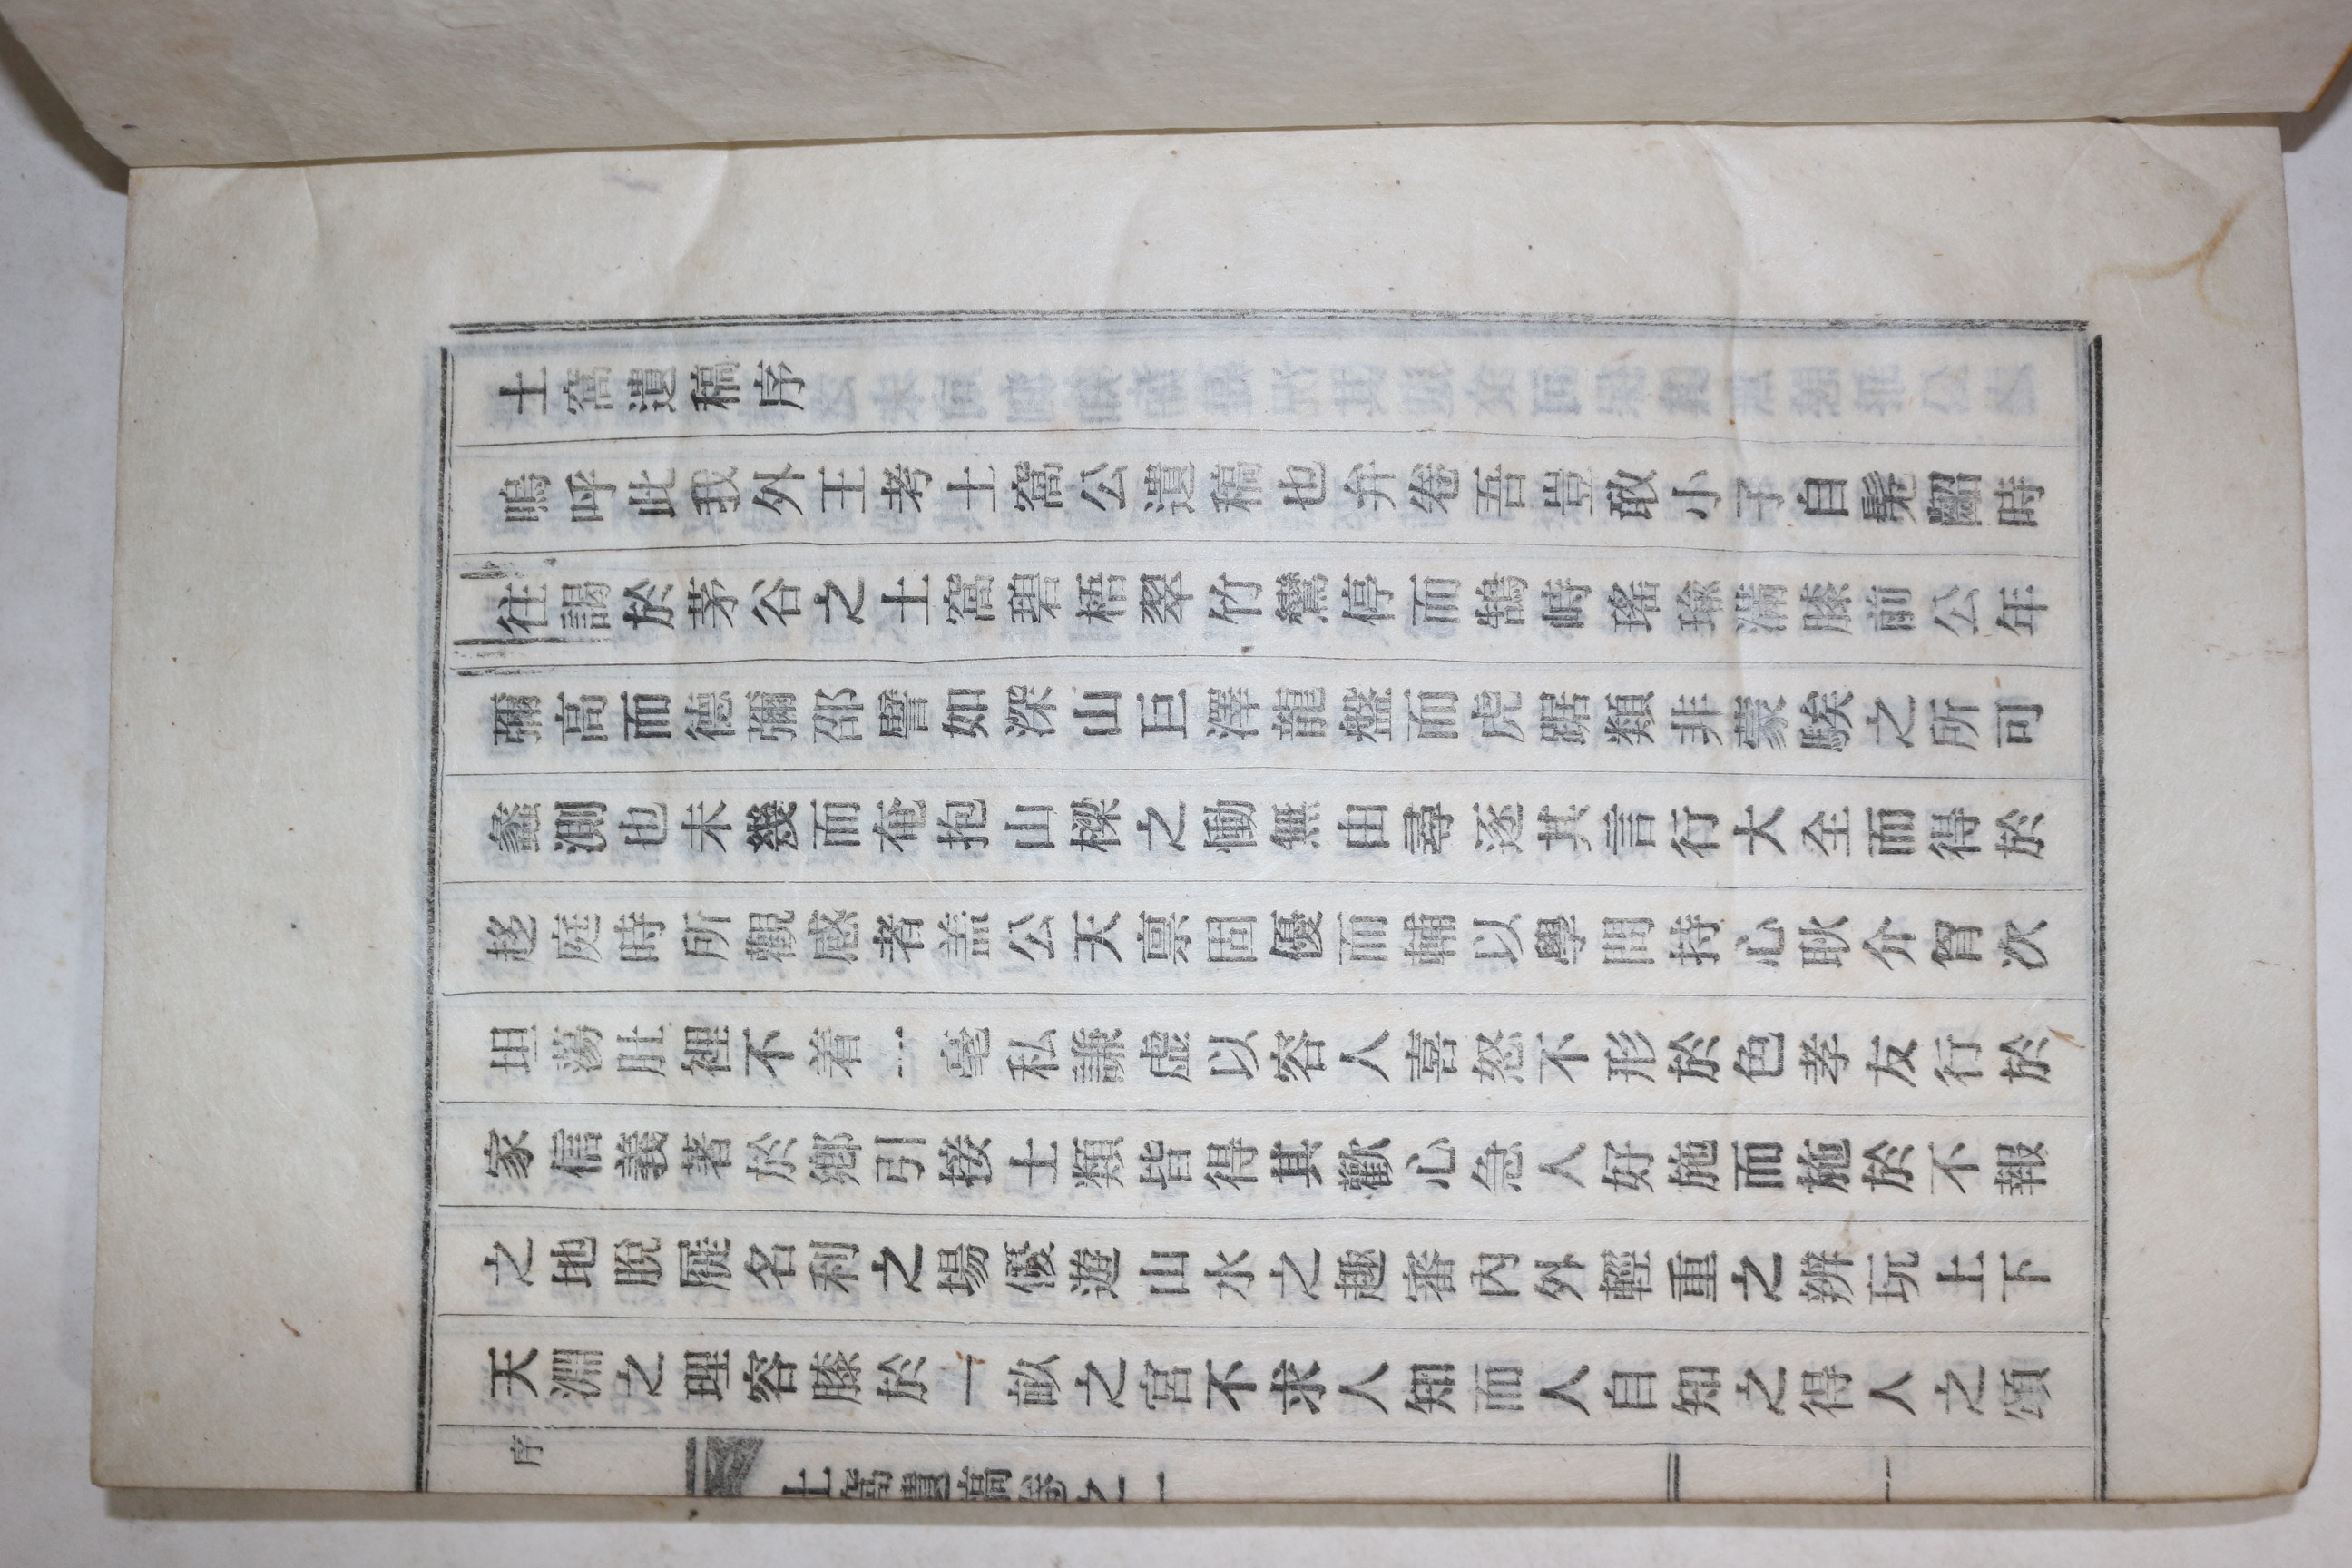 土窩遺稿序
嗚呼此我外王考土窩公遺稿也弁卷吾豈敢小子自髧齠時
往謁於茅谷之土窩碧梧翠竹鸞停而鵠峙瑤瑜滿膝前公年
彌高而德彌邵譬如深山巨澤龍盤而虎踞類非蒙騃之所可
蠡測也未幾而奄抱山樑之慟無由尋逐其言行大全而得於
趍庭時所觀感者盖公天禀固優而輔以學問持心耿介胷次
坦蕩肚裡不着一毫私謙虚以容人喜怒不形於色孝友行於
家信義著於鄉引接士類皆得其歡心急人好施而施於不報
之地脫屣名利之場優遊山水之趣審內外輕重之辨玩上下
天淵之理容膝於一畝之宮不求人知而人自知之得人之頌
序 土窩遺稿卷之一 一